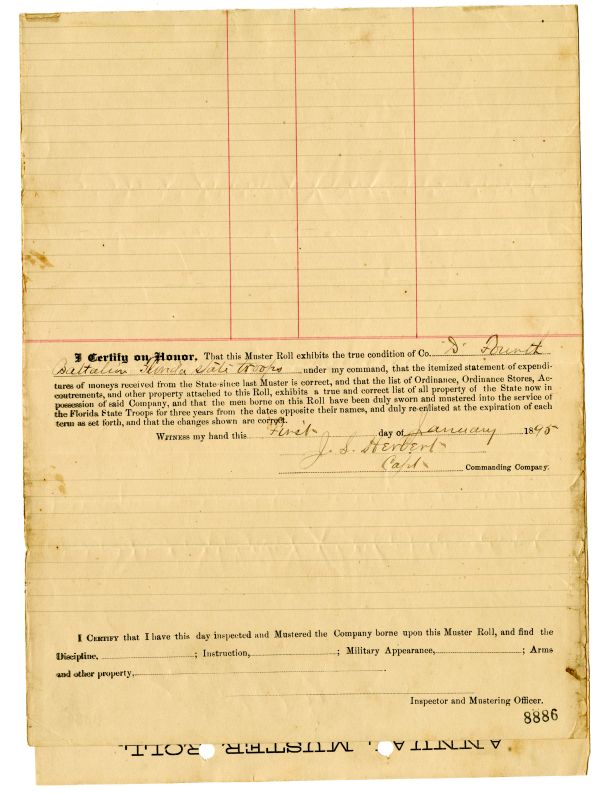 I Certify on Honor, That this Muster Roll exhibits the true condition of Co. "D" Fourth
Battalion Florida State Troops under my command, that the itemized statement of expendi-
tures of moneys received from the State since last Muster is correct, and that the list of Ordinance, Ordinance Stores, Ac-
coutrements, and other property attached to this Roll, exhibits a true and correct list of all property of the State now in
possession of said Company, and that the men borne on this Roll have been duly sworn and mustered into the service of
the Florida State Troops for three years from the dates opposite their names, and duly re-enlisted at the expiration of each
term as set forth, and that the changes shown are correct.
Witness my hand this First day of January 1895
J. S. Herbert
Capt Commanding Company.
I Certify that I have this day inspected and Mustered the Company borne upon this Muster Roll, and find the
Discipline, ; Instruction, ; Military Appearance, ; Arms
and other property,
Inspector and Mustering Officer.
8886
ANNUAL MUSTER ROLL